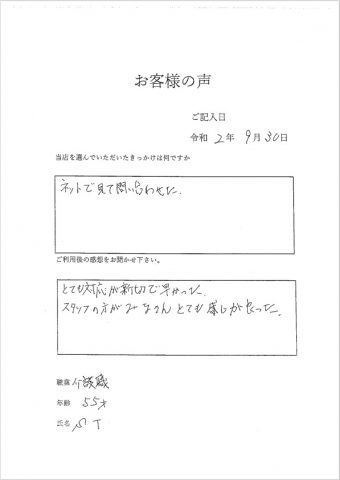 お客様の声
ご記入日
令和 2年 9月30日
当店を選んでいただいたきっかけは何ですか
ネットで見て問い合わせた.
ご利用後の感想をお聞かせ下さい。
とても対応が親切で早かった.
スタッフの方がみなさんとても感じが良った.
職業 介護職
年齢 55才
氏名 T